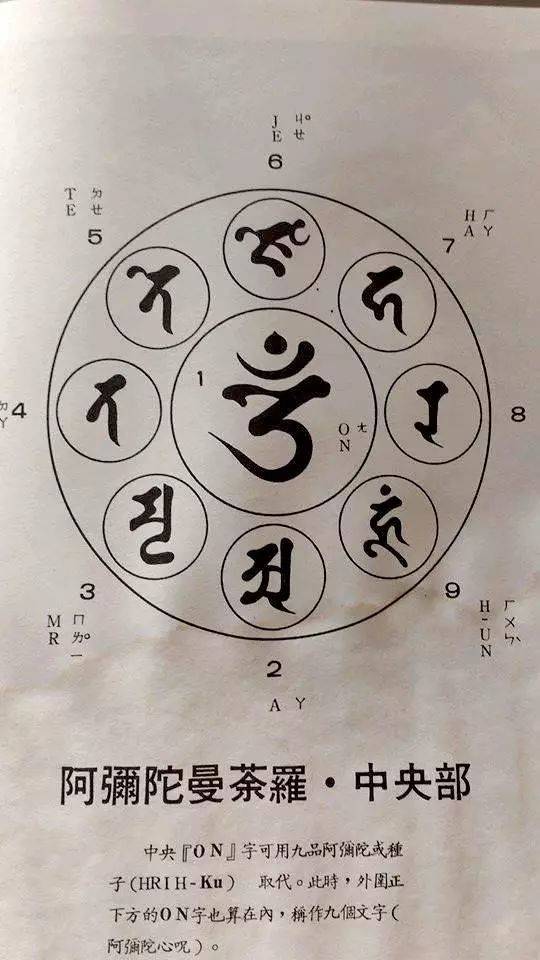 JE ㄐ°ㄝ
6
TE ㄉㄝ
5
HA ㄏㄚ
7
1
ON ㄤ
ㄚ
4
8
3
MR ㄇㄌ°ㄧ
9
H-UN ㄏㄨㄣ
2
A ㄚ
阿彌陀曼荼羅·中央部
中央『ON』字可用九品阿彌陀或種
子(HRIH-Ku) 取代。此時，外圍正
下方的ON字也算在內，稱作九個文字(
阿彌陀心呪)。